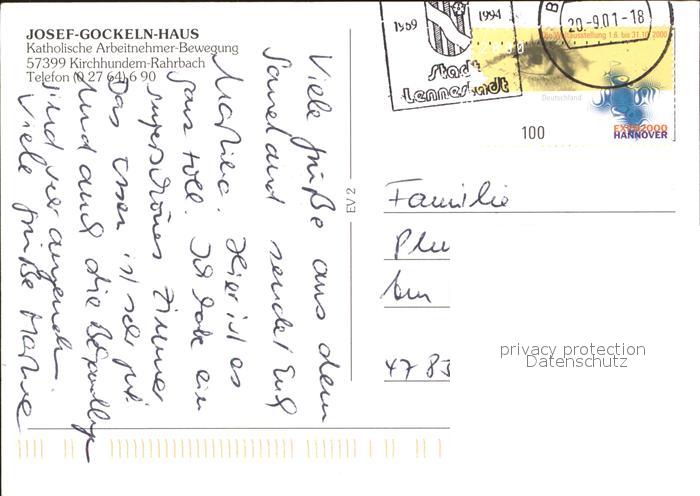 JOSEF-GOCKELN-HAUS
Katholische Arbeitnehmer-Bewegung
57399 Kirchhundem-Rahrbach
Telefon (0 27 64) 6 90
Viele Grüße aus dem
Sauerland sendet Euch
Martina. Hier ist es
ganz toll. Ich habe ein
superschönes Zimmer
Das Essen ist sehr gut
und auch die Behandlungen
sind sehr angenehm.
Viele Grüße Martina
EV 2
1969 1994
Stadt
Lennestadt
20.-9.01-18
Weltausstellung 1.6. bis 31.10.2000
Deutschland
100
EXPO2000
HANNOVER
Familie
Plu
Am
4783
privacy protection
Datenschutz